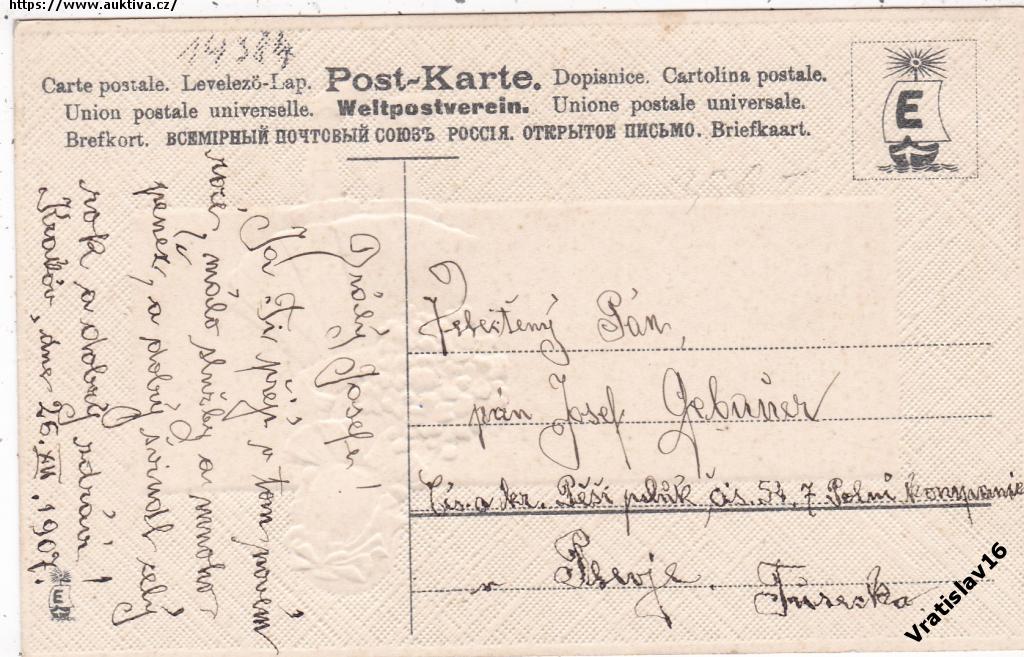 https://www.auktiva.cz/
14384
Carte postale. Levelező-Lap. Post-Karte. Dopisnice. Cartolina postale.
Union postale universelle. Weltpostverein. Unione postale universale.
Brefkort. ВСЕМІРНЫЙ ПОЧТОВЫЙ СОЮЗЪ РОССІЯ. ОТКРЫТОЕ ПИСЬМО. Briefkaart.
E
Drahý Josefe!
Já Ti přeji v tom novém
roce, málo služby a mnoho
peněz, a dobrý švindl celý
rok a dobrý zdraví!
Krakov, dne 26. XII. 1907.
E
Pán,
pán Josef Gebauer
Cís. a kr. Pěší pluk čís. 54, 7 Polní kompanie
v Plevje. Turecko
Vratislav16